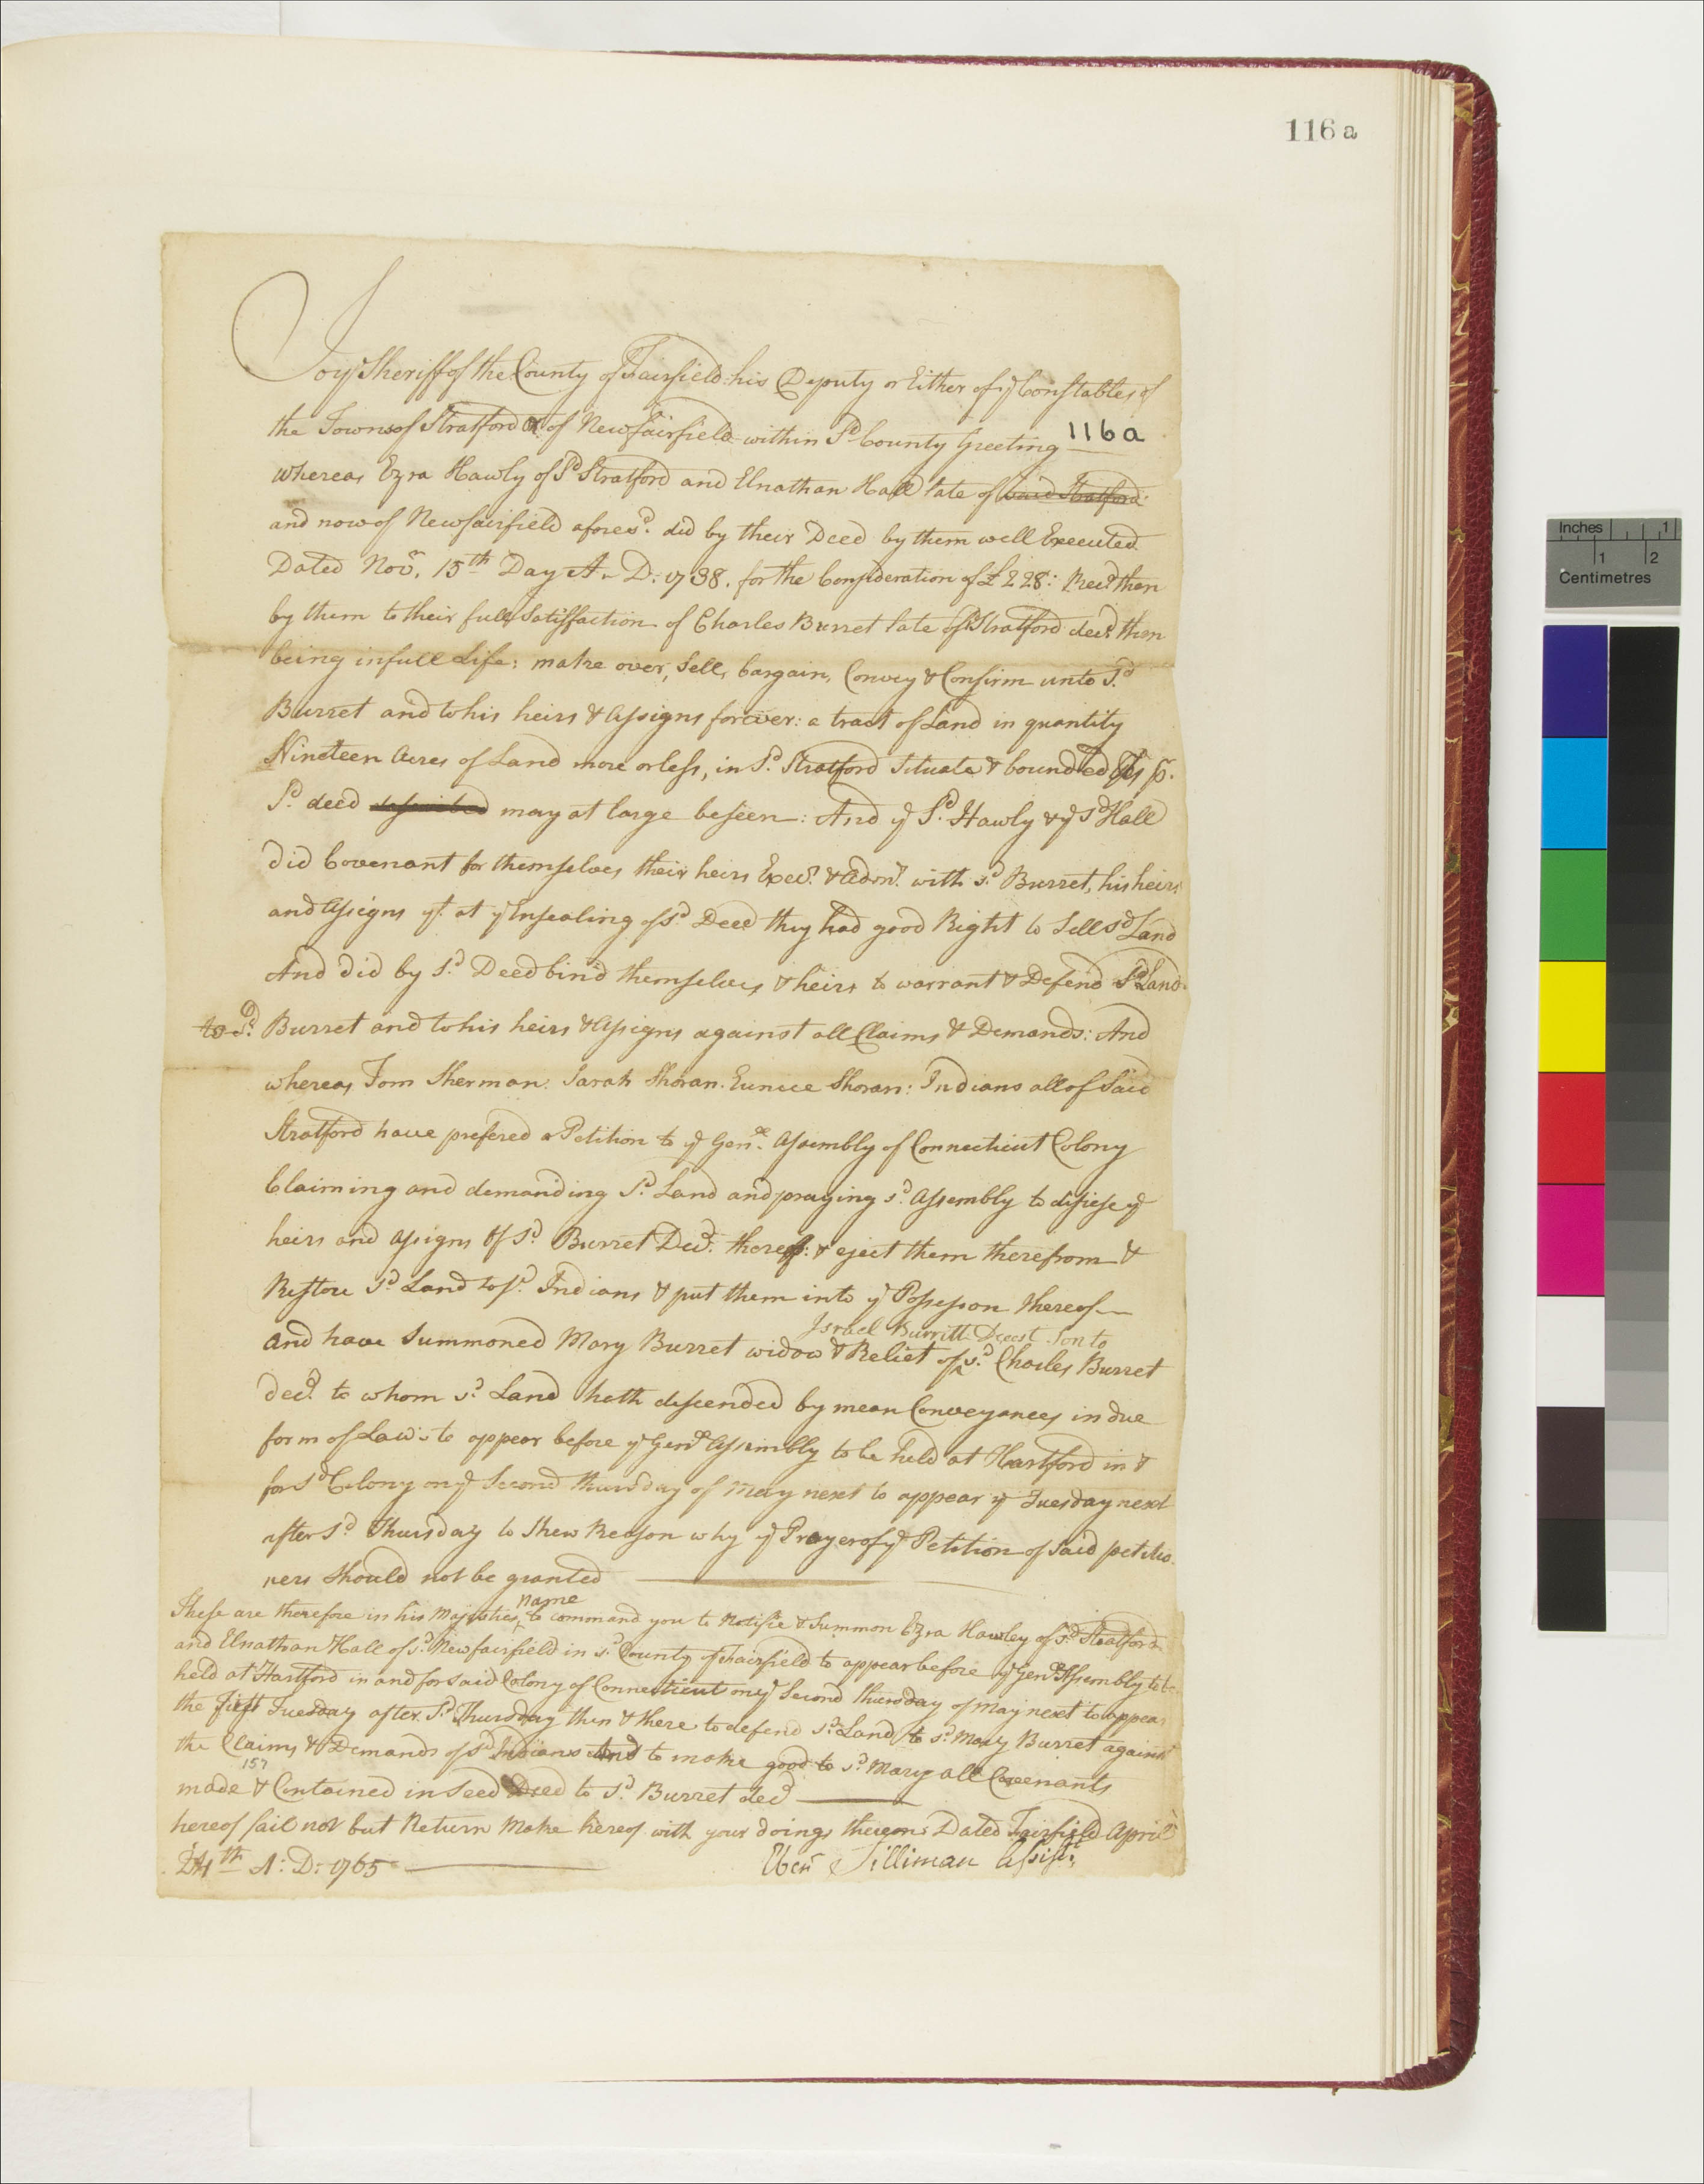 116 a
To yͤ Sheriff of the County of Fairfield his Deputy or Either of yͤ Constables of
the Towns of Stratford or of Newfairfield within Sᵈ County Greeting
116a
whereas Ezra Hawly of Sᵈ Stratford and Elnathan Hall late of said Stratford
and now of Newfairfield aforesᵈ. did by their Deed by them well Executed
Dated Novʳ. 15th Day A. D: 1738. for the Consideration of £228: Recᵈ then
by them to their full Satisfaction of Charles Burret late of Sᵈ Stratford decᵈ then
being in full Life: make over, Sell, bargain, Convey & Confirm unto Sᵈ
Burret and to his heirs & Assigns forever: a tract of Land in quantity
Nineteen Acres of Land more or less, in Sᵈ. Stratford Situate & bounded as pʳ.
Sᵈ deed may at large be seen: And yͤ Sᵈ. Hawly & yͤ Sᵈ Hall
did Covenant for themselves their heirs Execʳ. & Admʳ. with sᵈ Burret, his heirs
and Assigns yᵗ. at yͤ Ensealing of sᵈ Deed they had good Right to Sell sᵈ Land
And did by sᵈ Deed bind themselves & heirs to warrant & Defend Sᵈ Land
to Sᵈ. Burret and to his heirs & Assigns against all Claims & Demands: And
whereas Tom Sherman. Sarah Shoran. Eunice Shoran: Indians all of Said
Stratford have prefered a Petition to yͤ Genˡˡ. Assembly of Connecticut Colony
Claiming and demanding Sᵈ. Land and praying sᵈ. Assembly to disiese yͤ
heirs and assigns of sᵈ. Burret Decᵈ. thereof: & eject them therefrom &
Restore sᵈ Land to sᵈ. Indians & put them into yͤ Possesson thereof
Israel Burritt Deecst Son to
and have Summoned Mary Burret widow & Relict of sᵈ. Charles Burret
decᵈ. to whom sᵈ. Land hath descended by mean Conveyances in due
form of Law: to appear before yͤ Genˡˡ Assembly to be held at Hartford in &
for sᵈ Colony on yͤ Second thursday of May next to appear yͤ Tuesday next
after Sᵈ Thursday to Shew Reason why yͤ Prayer of yͤ Petition of said petitio
ners Should not be granted
name
These are therefore in his Majesties to command you to Notifie & Summon Ezra Hawley of sᵈ. Stratford
and Elnathan Hall of sᵈ. Newfairfield in sᵈ. County of Fairfield to appear before yͤ Genˡˡ Assembly to be
held at Hartford in and for said Colony of Connecticut on yͤ Second thursday of May next to appear
the first Tuesday after Sᵈ. Thursday then & there to defend sᵈ. Land to sᵈ. Mary Burret against
the Claims & Demands of sᵈ Indians And to make good to sᵈ Mary all Covenants
157
made & Contained in Seed Deed to sᵈ. Burret decᵈ
hereof fail not but Return Make hereof with your doings thereon: Dated Fairfield April
24th A: D: 1765
Ebenʳ Silliman Assistᵗ.